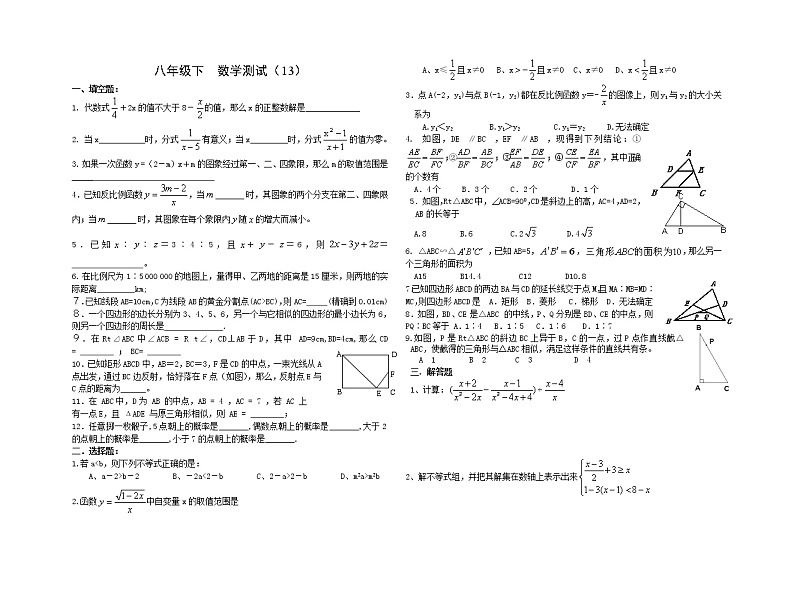 八年级下 数学测试（13）
一、填空题:
1. 代数式 1/4 +2x的值不大于8- x/2 的值，那么x的正整数解是____________
2. 当x__________时,分式 1/(x-5) 有意义；当x________时,分式 (x²-1)/(x+1) 的值为零。
3.如果一次函数y=(2-m)x+m的图象经过第一、二、四象限，那么m的取值范围是
________________________________
4.已知反比例函数 y=(3m-2)/x ，当m ______ 时，其图象的两个分支在第二、四象限
内；当m ______ 时，其图象在每个象限内y随x的增大而减小。
5.已知x:y:z=3:4:5，且x+y-z=6，则2x-3y+2z=
________________。
6.在比例尺为1:5000 000的地图上，量得甲、乙两地的距离是15厘米，则两地的实
际距离________km;
7.已知线段AB=10cm,C为线段AB的黄金分割点(AC>BC),则AC=_____(精确到0.01cm)
8.、一个四边形的边长分别为3、4、5、6，另一个与它相似的四边形的最小边长为6,
则另一个四边形的周长是_____________.
9．在Rt∠ABC中∠ACB = R t∠，CD⊥AB于D，其中 AD=9cm,BD=4cm,那么CD
= ________ ; BC= ________
10.已知矩形ABCD中，AB=2，BC=3，F是CD的中点，一束光线从A
点出发，通过BC边反射，恰好落在F点（如图），那么，反射点E与
C点的距离为______。
A D
F
B E C
11．在 ABC中，D为 AB 的中点，AB = 4 ，AC = 7 ，若 AC 上
有一点E，且 ΔADE 与原三角形相似，则 AE = ________；
12.任意掷一枚骰子,5点朝上的概率是_______,偶数点朝上的概率是_______,大于2
的点朝上的概率是_______,小于7的点朝上的概率是_______.
二．选择题:
1.若a<b，则下列不等式正确的是:
A、a-2>b-2 B、-2a<2-b C、2-a>2-b D、m²a>m²b
2.函数 y=√(1-2x)/x 中自变量x的取值范围是
A、x≤1/2且x≠0 B、x>-1/2且x≠0 C、x≠0 D、x<1/2且x≠0
3．点A(-2，y₁)与点B(-1，y₂)都在反比例函数y=-2/x的图像上，则y₁与y₂的大小关
系为
A.y₁<y₂ B.y₁>y₂ C.y₁=y₂ D.无法确定
4. 如图，DE ∥BC ，EF ∥AB ，现得到下列结论：①
AE/EC=BF/FC;②AD/BF=AB/BC;③EF/AB=DE/BC;④CE/CF=EA/BF，其中正确
的个数有
A．4个 B．3个 C．2个 D．1个
A
D E
B F C
5．如图,Rt△ABC中，∠ACB=90⁰,CD是斜边上的高,AC=4,AD=2，
AB的长等于
A.8 B.6 C.2√3 D.4√3
C
A D B
6．△ABC∽△A′B′C′，已知AB=5，A′B′=6，三角形ABC的面积为10,那么另一
个三角形的面积为
A15 B14.4 C12 D10.8
7已知四边形ABCD的两边BA与CD的延长线交于点M,且MA∶MB=MD∶
MC,则四边形ABCD是 A．矩形 B．菱形 C．梯形 D．无法确定
8．如图,BD、CE 是△ABC 的中线，P、Q分别是BD、CE的中点，则
PQ∶BC等于 A.1∶4 B.1∶5 C.1∶6 D.1∶7
A
E D
P Q
B C
9.如图，P是Rt△ABC的斜边BC上异于B，C的一点，过P点作直线截△
ABC，使截得的三角形与△ABC相似，满足这样条件的直线共有条。
A 1 B 2 C 3 D 4
B
P
A C
三. 解答题
1、计算：((x+2)/(x²-2x)-(x-1)/(x²-4x+4))÷(x-4)/x
2、解不等式组，并把其解集在数轴上表示出来{(x-3)/2+3≥x
1-3(x-1)<8-x